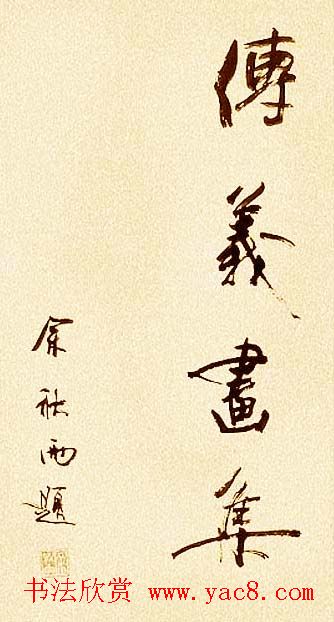 傅義畫集
余秋雨題
书法欣赏 www.yac8.com